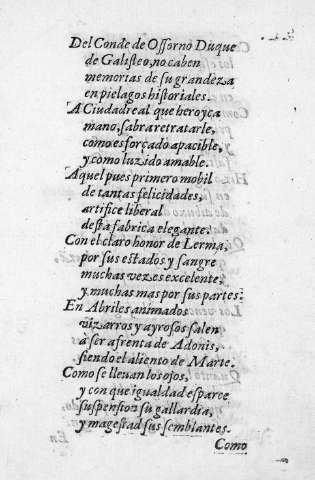 Del Conde de Oſſorno Duque
de Galiſteo, no caben
memorias de ſu grandeza
en pielagos hiſtoriales.
A Ciudadreal que heroyca
mano, ſabra retratarle,
como esforçado apacible,
y como luzido amable.
Aquel pues primero mobil
de tantas felicidades,
artifice liberal
deſta fabrica elegante.
Con el claro honor de Lerma,
por ſus eſtados y ſangre
muchas vezes excelente,
y muchas mas por ſus partes.
En Abriles animados
vizarros y ayroſos ſalen
à ſer afrenta de Adonis,
ſiendo el aliento de Marte.
Como ſe lleuan los ojos,
y con que igualdad eſparce
ſuspenſion ſu gallardia,
y mageſtad ſus ſemblantes.
Como